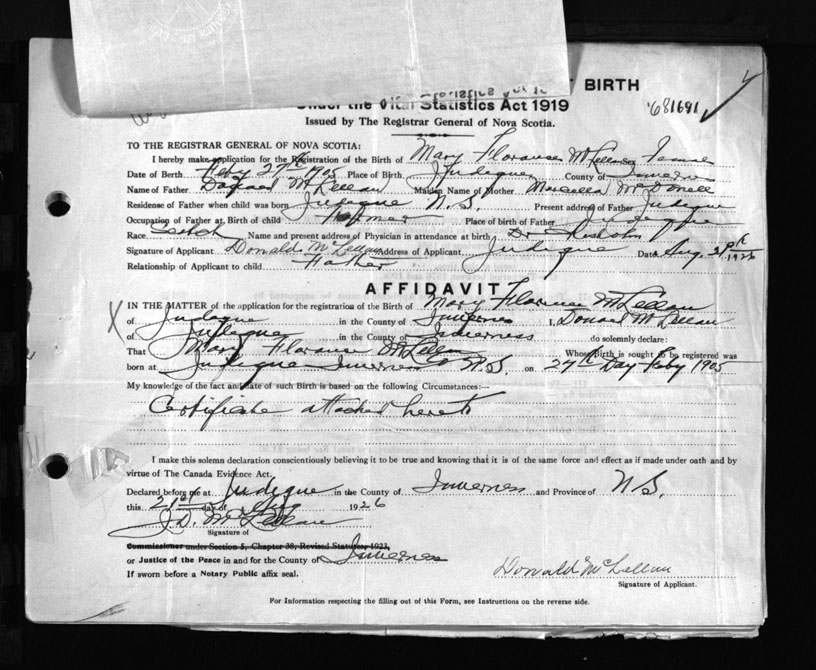 BIRTH
Under the Vital Statistics Act 1919
681691
Issued by The Registrar General of Nova Scotia.
TO THE REGISTRAR GENERAL OF NOVA SCOTIA:
I hereby make application for the Registration of the Birth of Mary Florance McLellan Sex Female
Date of Birth Feby 27th 1905 Place of Birth Judique County of Inverness
Name of Father Donald McLellan Maiden Name of Mother Marcella McDonell
Residence of Father when child was born Judique N.S. Present address of Father Judique
Occupation of Father at Birth of child Farmer Place of birth of Father Judique
Race Scotch Name and present address of Physician in attendance at birth Dr
Signature of Applicant Donald McLellan Address of Applicant Judique Date Aug. 21st 1926
Relationship of Applicant to child Father
AFFIDAVIT
X IN THE MATTER of the application for the registration of the Birth of Mary Florence McLellan
of Judique in the County of Inverness I, Donald McLellan
of Judique in the County of Inverness do solemnly declare:
That Mary Florance McLellan Whose Birth is sought to be registered was
born at Judique Inverness Co N.S. on 27th Day Feby 1905
My knowledge of the fact and date of such Birth is based on the following Circumstances:—
Certificate attached hereto
I make this solemn declaration conscientiously believing it to be true and knowing that it is of the same force and effect as if made under oath and by
virtue of The Canada Evidence Act.
Declared before me at Judique in the County of Inverness and Province of N.S.
this 21st day of Aug 1926
J.D. McLellan
Signature of
Commissioner under Section 5, Chapter 38, Revised Statutes, 1923,
or Justice of the Peace in and for the County of Inverness
If sworn before a Notary Public affix seal.
Donald McLellan
Signature of Applicant.
For Information respecting the filling out of this Form, see Instructions on the reverse side.